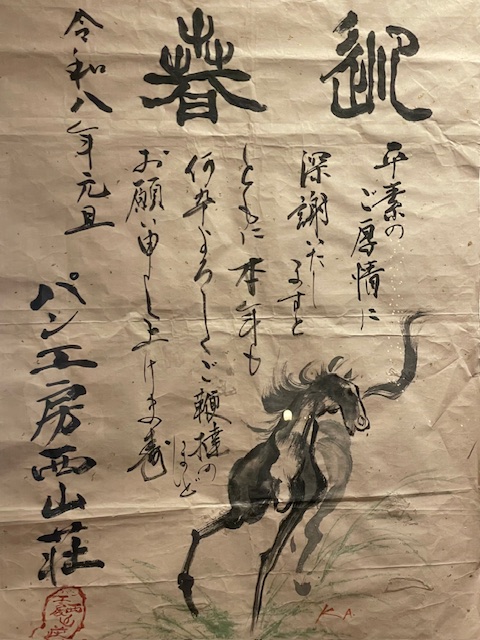 迎春
平素の
ご厚情に
深謝いたし
ますと
ともに本年も
何卒よろしくご鞭撻の
ほど
お願い申し上げます
令和八年元旦
パン工房西山荘
K A.